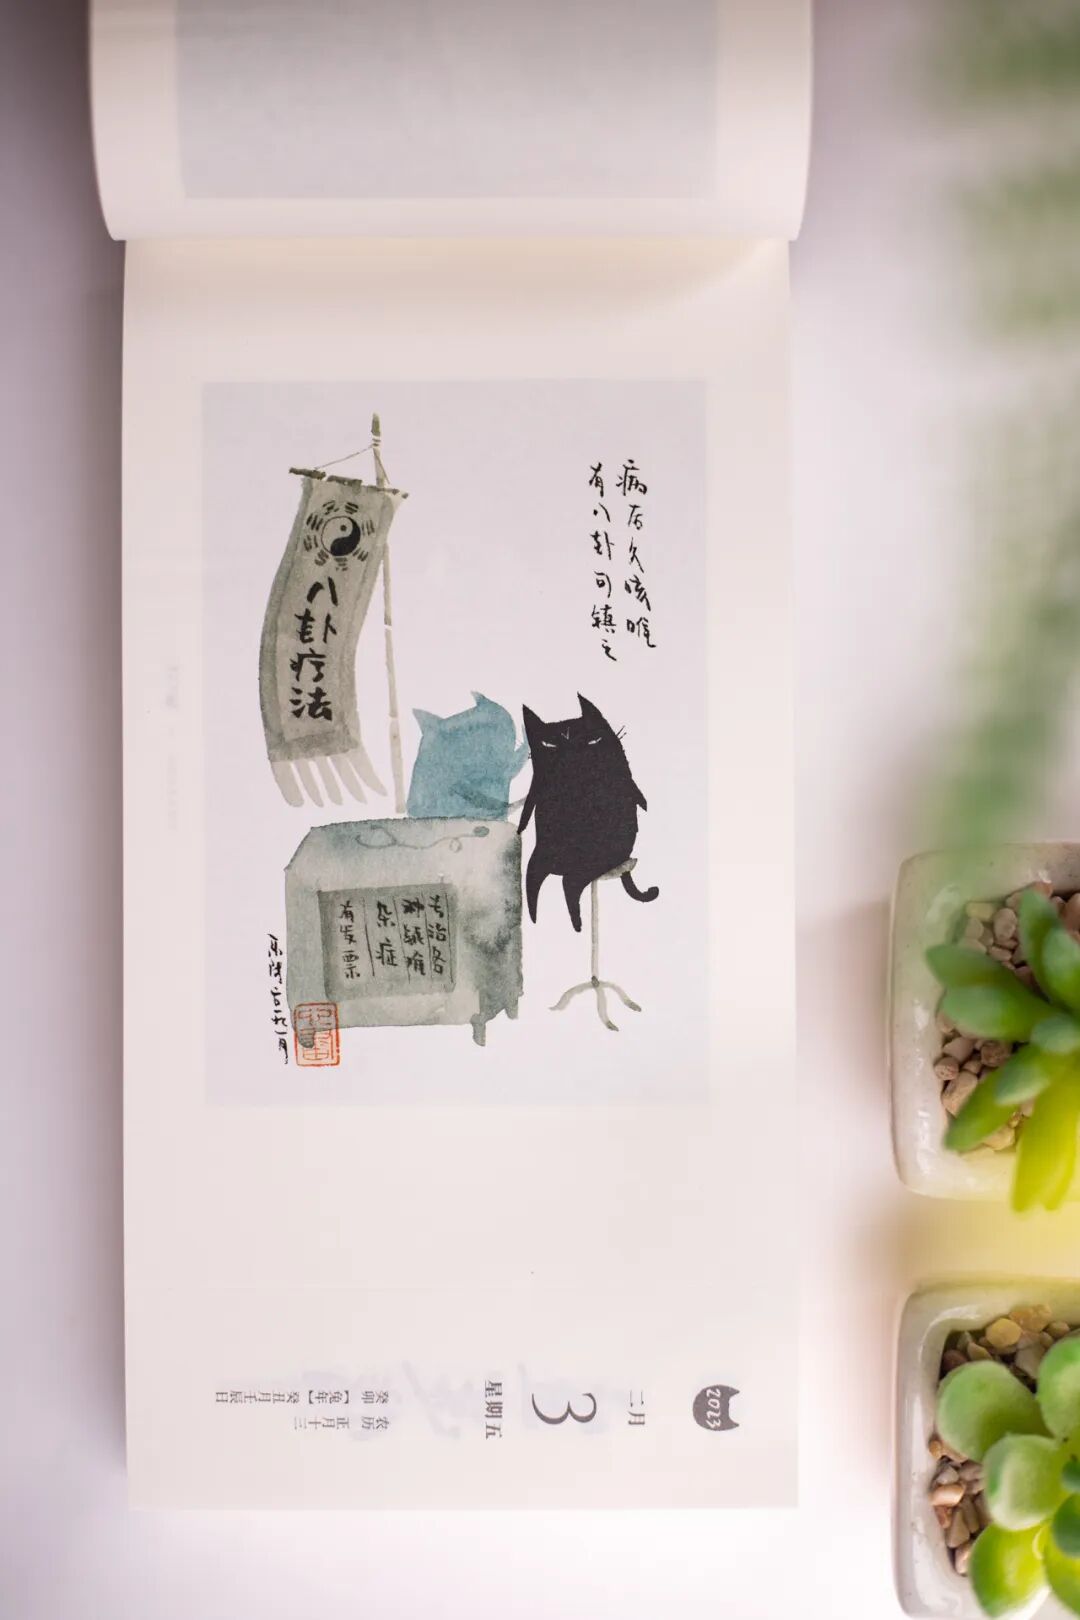 病后久咳唯
有八卦可镇之
八卦疗法
专治各
种疑难
杂症
有发票
2023
二月
3
星期五
农历 正月十三
癸卯【兔年】癸丑月壬辰日